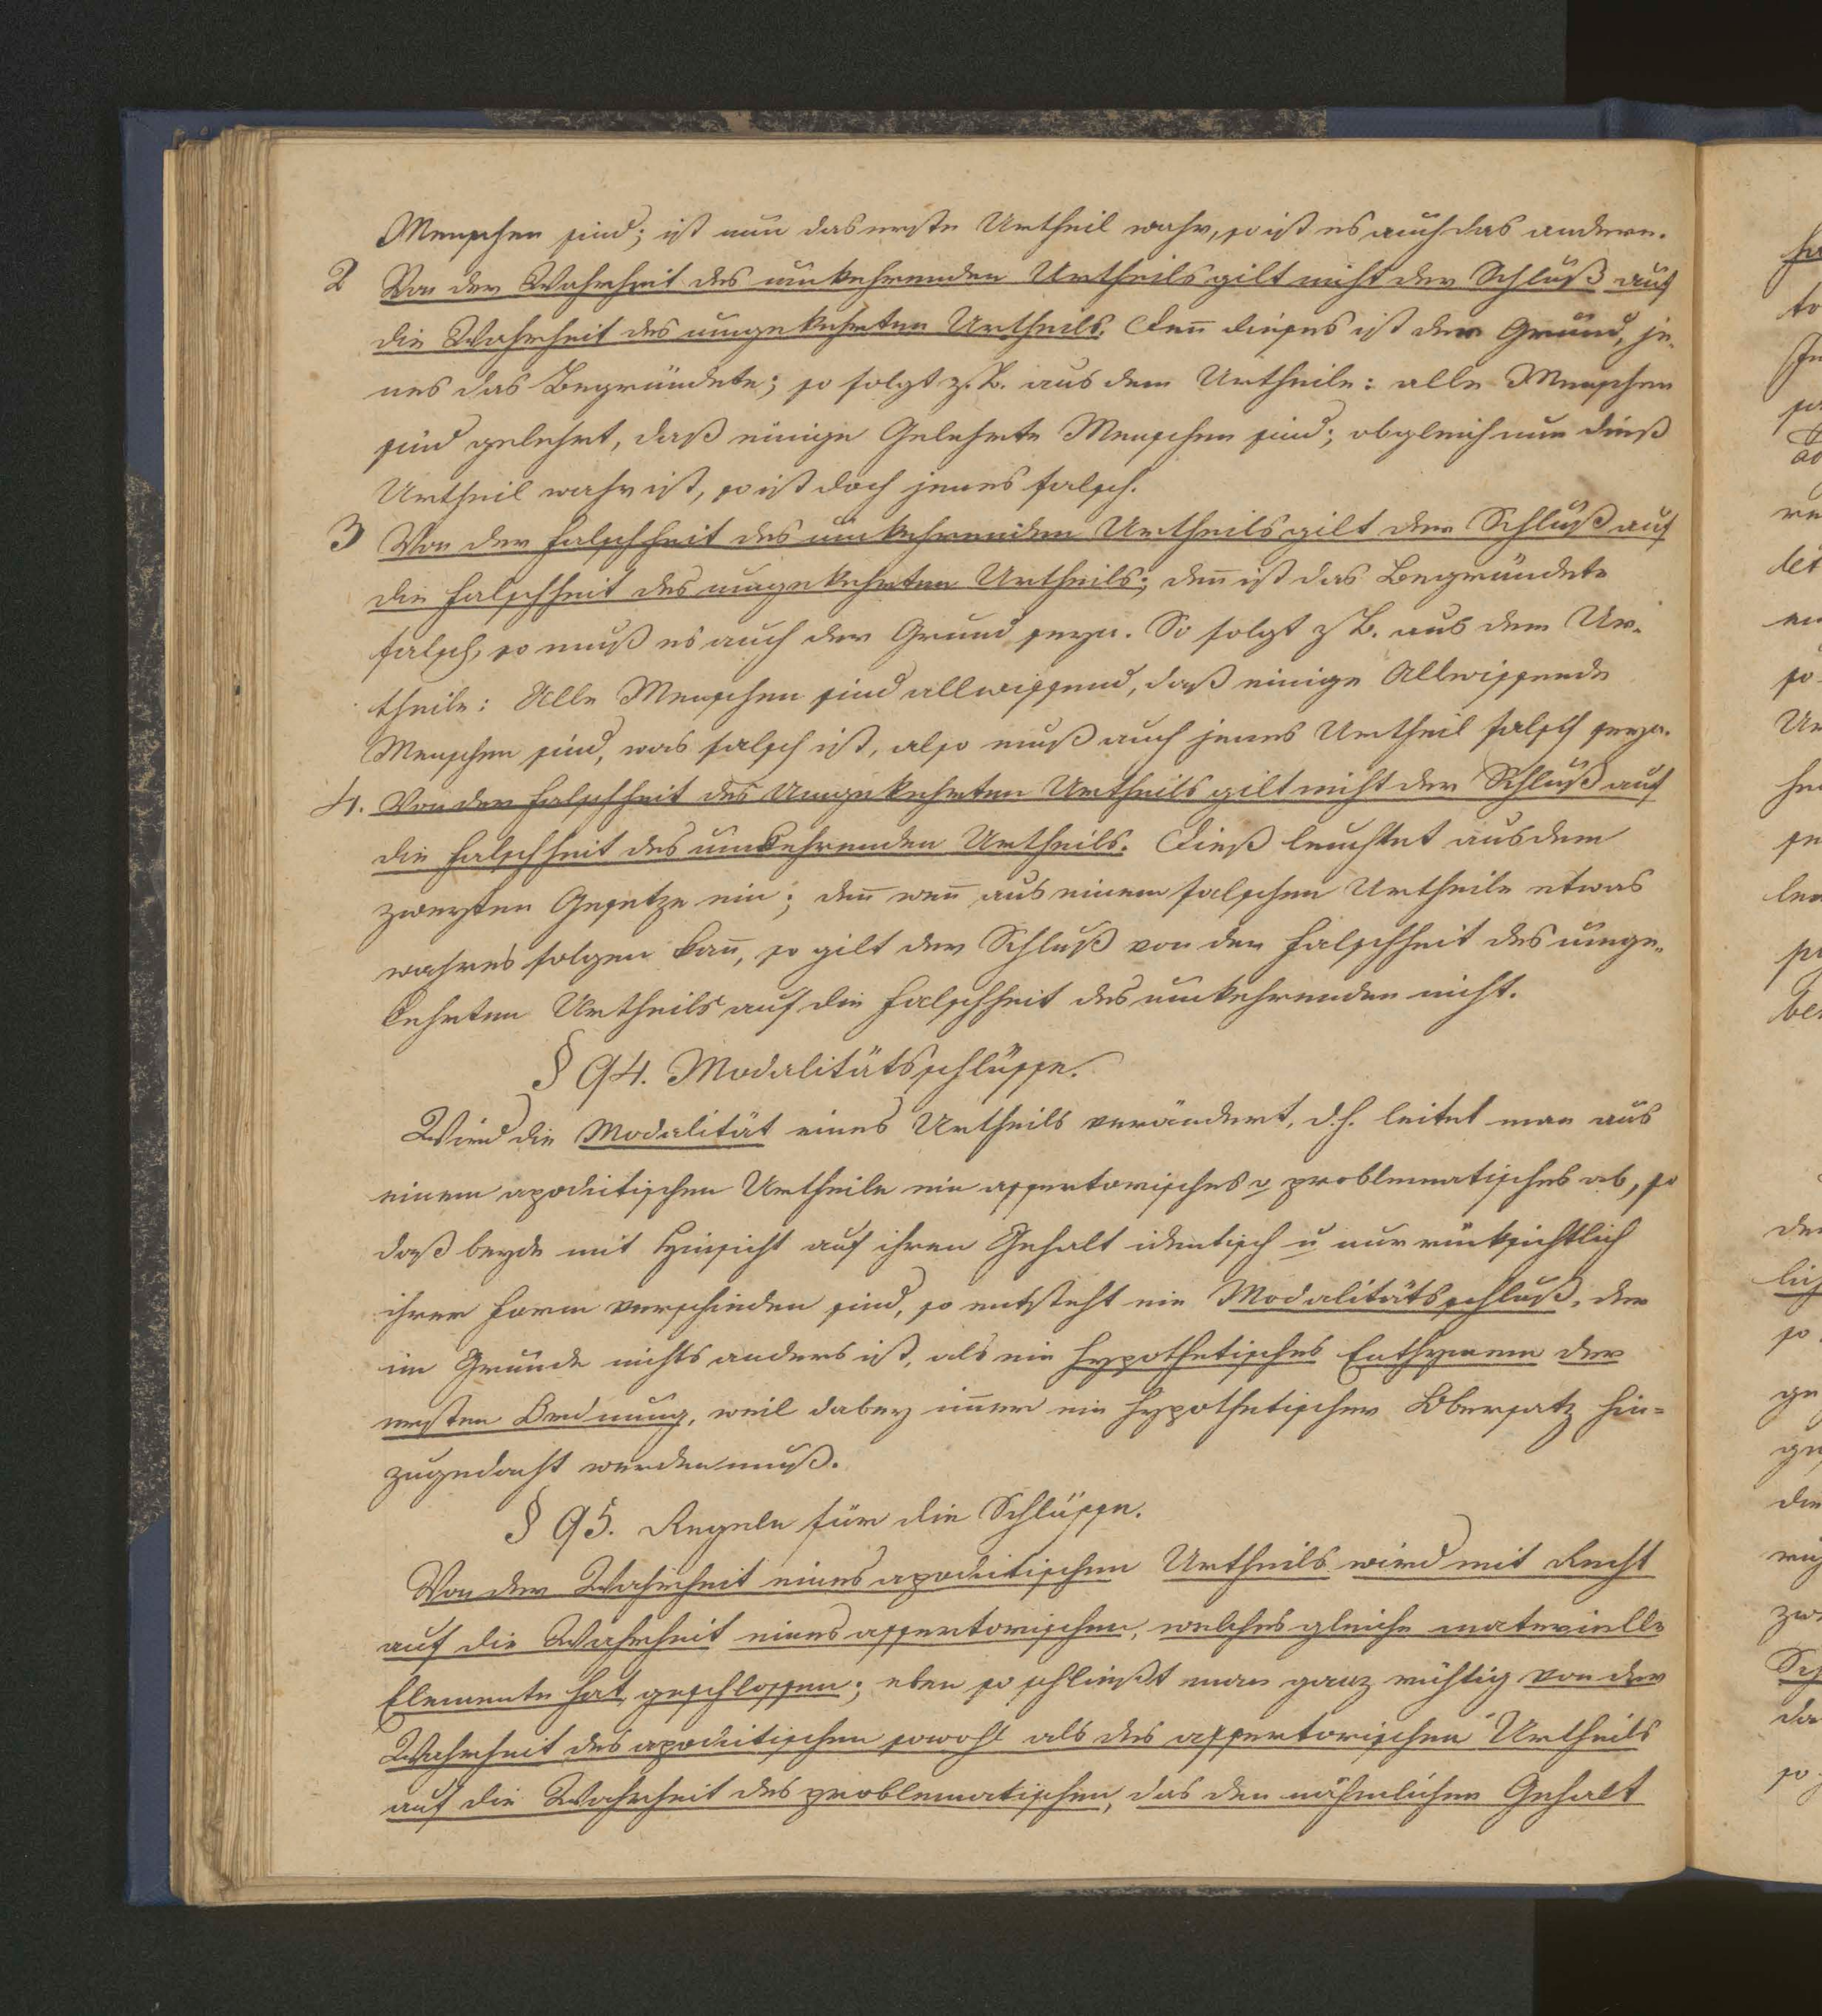 Menschen sind; ist nun das erste Urtheil wahr, so ist es auch das andere.
2 Von der Wahrheit des umkehrenden Urtheils gilt nicht der Schluß auf
die Wahrheit des umgekehrten Urtheils. Deñ dieses ist der Grund, je-
nes das Begründete; so folgt z. B. aus dem Urtheile: alle Menschen
sind gelehrt, daß einige Gelehrte Menschen sind; obgleich nun dieß
Urtheil wahr ist, so ist doch jenes falsch.
3 Von der Falschheit des umkehrenden Urtheils gilt der Schluß auf
die Falschheit des umgekehrten Urtheils; deñ ist das Begründete
falsch, so muß es auch der Grund seyn. So folgt z B. aus dem Ur-
theile: Alle Menschen sind allwissend, daß einige Allwissende
Menschen sind, was falsch ist, also muß auch jenes Urtheil falsch seyn.
4. Von der Falschheit des Umgekehrten Urtheils gilt nicht der Schluß auf
die Falschheit des umkehrenden Urtheils. Dieß leuchtet aus dem
zweyten Gesetze ein; deñ weñ aus einem falschen Urtheile etwas
wahres folgen kañ, so gilt der Schluß von der Falschheit des umge-
kehrten Urtheils auf die Falschheit des umkehrenden nicht.
§ 94. Modalitätsschlüsse.
Wird die Modalität eines Urtheils verändert, d. h. leitet man aus
einem apodictischen Urtheile ein assertorisches o problematisches ab, so
daß beyde mit Hinsicht auf ihren Gehalt identisch u nur rücksichtlich
ihrer Form verschieden sind, so entsteht ein Modalitätsschluß, der
im Grunde nichts anders ist, als ein hypothetisches Enthymem der
ersten Ordnung, weil dabey im̃er ein hypothetischer Obersatz hin-
zugedacht werden muß.
§ 95. Regeln für die Schlüsse.
Von der Wahrheit eines apodictischen Urtheils wird mit Recht
auf die Wahrheit eines assertorischen, welches gleiche materielle
Elemente hat, geschlossen; eben so schließt man ganz richtig von der
Wahrheit des apodictischen sowohl als des assertorischen Urtheils
auf die Wahrheit des problematischen, das den nähmlichen Gehalt